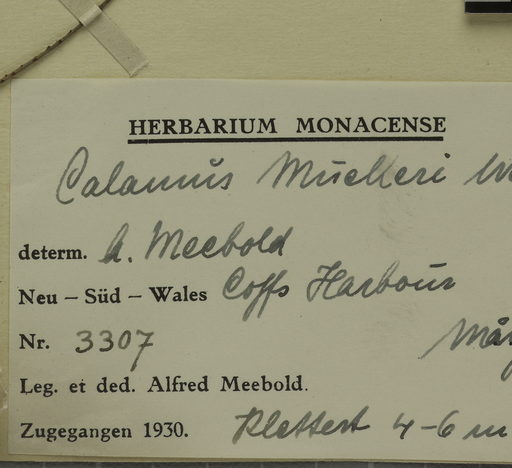 HERBARIUM MONACENSE
Calamus Muelleri
determ. A. Meebold
Neu – Süd – Wales Coffs Harbour
Nr. 3307
Leg. et ded. Alfred Meebold.
Zugegangen 1930. Klettert 4–6 m